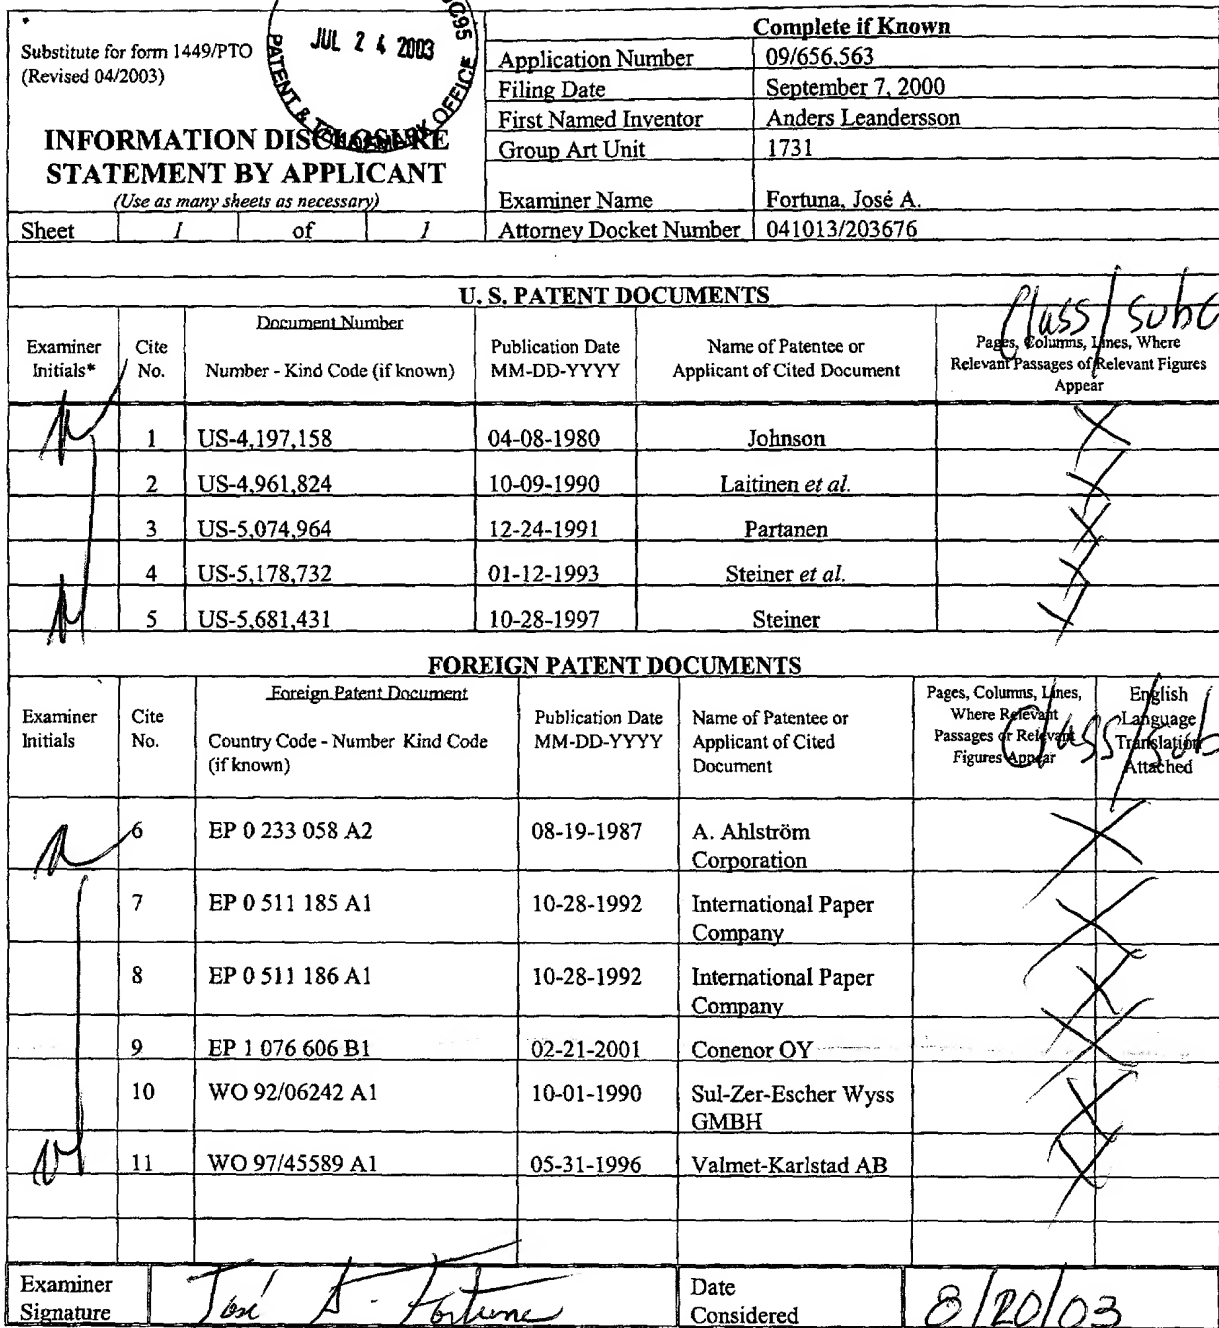 Substitute for form 1449/PTO
(Revised 04/2003)
JUL 2 4 2003
PATENT & TRADEMARK OFFICE
INFORMATION DISCLOSURE
STATEMENT BY APPLICANT
(Use as many sheets as necessary)
Sheet 1 of 1
Complete if Known
Application Number 09/656,563
Filing Date September 7, 2000
First Named Inventor Anders Leandersson
Group Art Unit 1731
Examiner Name Fortuna, José A.
Attorney Docket Number 041013/203676
U. S. PATENT DOCUMENTS
Class/subc
Examiner Initials* Cite No. Document Number Number - Kind Code (if known) Publication Date MM-DD-YYYY Name of Patentee or Applicant of Cited Document Pages, Columns, Lines, Where Relevant Passages of Relevant Figures Appear
1 US-4,197,158 04-08-1980 Johnson
2 US-4,961,824 10-09-1990 Laitinen et al.
3 US-5,074,964 12-24-1991 Partanen
4 US-5,178,732 01-12-1993 Steiner et al.
5 US-5,681,431 10-28-1997 Steiner
FOREIGN PATENT DOCUMENTS
Examiner Initials Cite No. Foreign Patent Document Country Code - Number Kind Code (if known) Publication Date MM-DD-YYYY Name of Patentee or Applicant of Cited Document Pages, Columns, Lines, Where Relevant Passages or Relevant Figures Appear English Language Translation Attached
Class/sub
6 EP 0 233 058 A2 08-19-1987 A. Ahlström Corporation
7 EP 0 511 185 A1 10-28-1992 International Paper Company
8 EP 0 511 186 A1 10-28-1992 International Paper Company
9 EP 1 076 606 B1 02-21-2001 Conenor OY
10 WO 92/06242 A1 10-01-1990 Sul-Zer-Escher Wyss GMBH
11 WO 97/45589 A1 05-31-1996 Valmet-Karlstad AB
Examiner Signature José A. Fortuna Date Considered 8/20/03